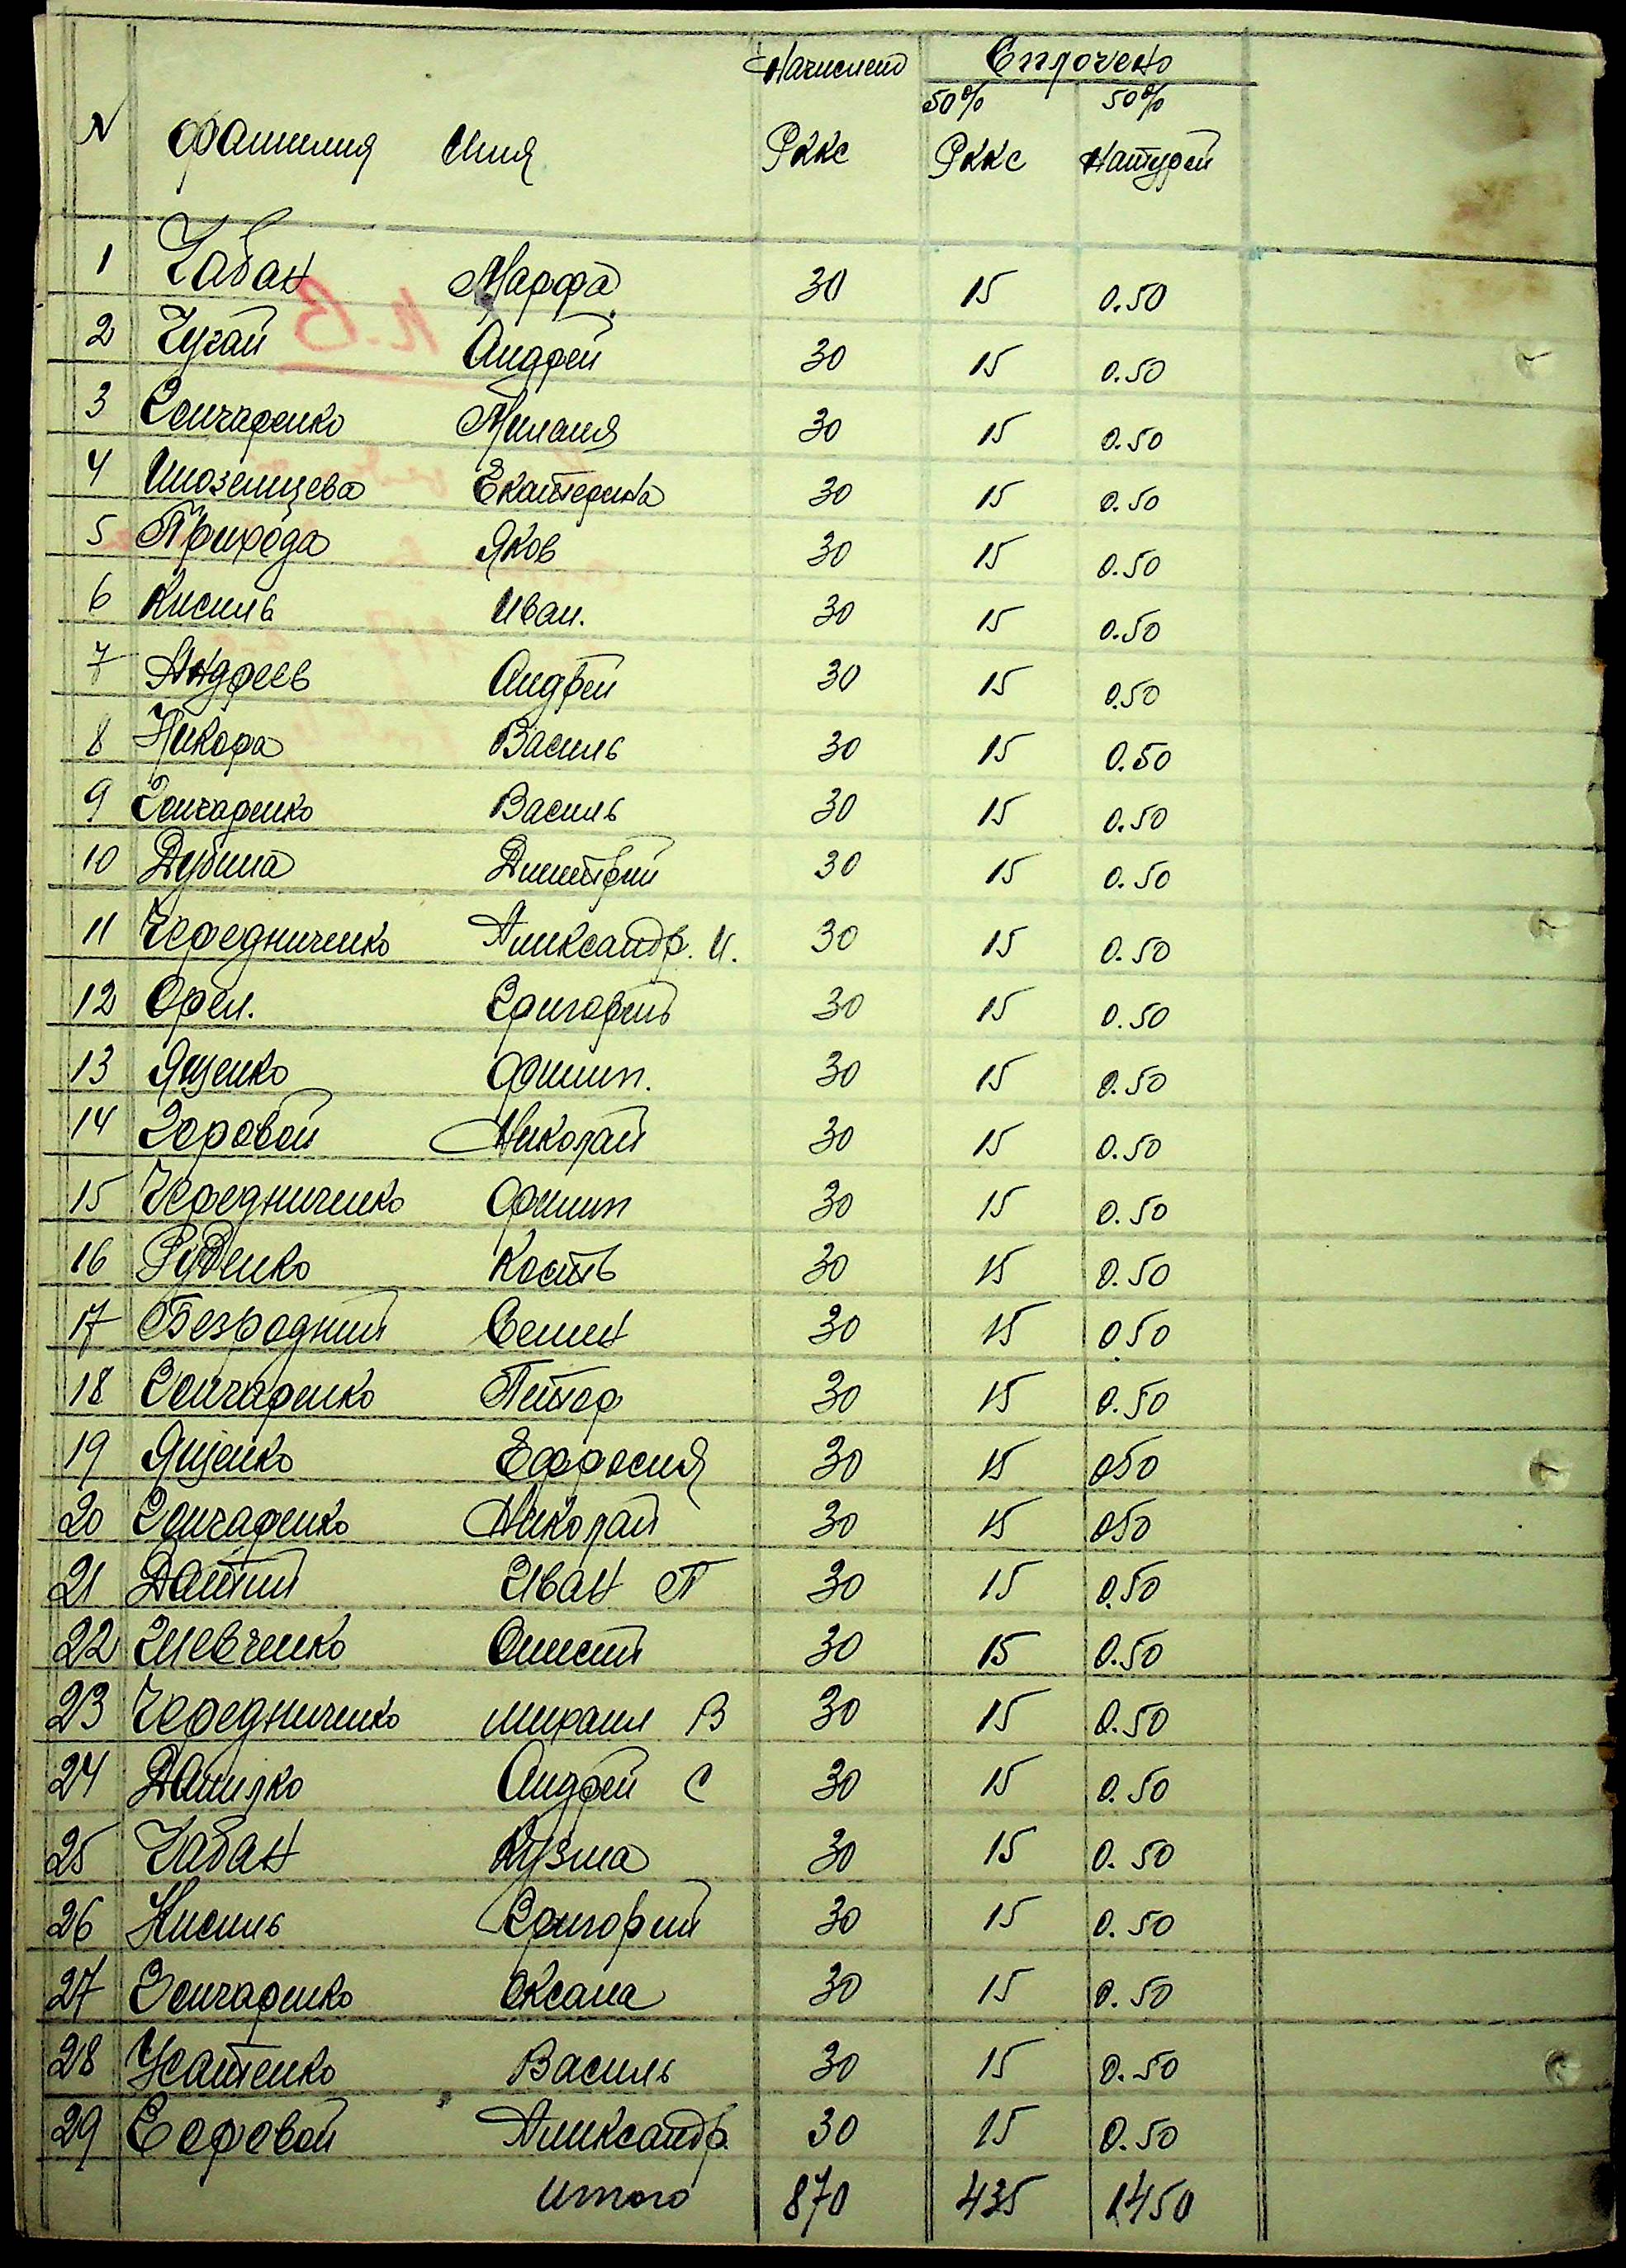 Начислено Сплочено
50% 50%
N Фамилия Имя Рккс Рккс Натурой
1 Чабан Марфа 30 15 0.50
2 Чугай Андрей 30 15 0.50
3 Гончаренко Милания 30 15 0.50
4 Иноземцева Екатерина 30 15 0.50
5 Прихода Яков 30 15 0.50
6 Кисиль Иван. 30 15 0.50
7 Андреев Андрей 30 15 0.50
8 Никора Василь 30 15 0.50
9 Гончаренко Василь 30 15 0.50
10 Дубина Дмитрий 30 15 0.50
11 Чередниченко Александр. И. 30 15 0.50
12 Орел. Григорий 30 15 0.50
13 Ященко Филип. 30 15 0.50
14 Горовой Николай 30 15 0.50
15 Чередниченко Филип 30 15 0.50
16 Руденко Кость 30 15 0.50
17 Безродний Семен 30 15 050
18 Гончаренко Петор 30 15 0.50
19 Ященко Ефросия 30 15 050
20 Гончаренко Николай 30 15 050
21 Иван П 30 15 0.50
22 Шевченко 30 15 0.50
23 Чередниченко Михаил В 30 15 0.50
24 Данилко Андрей С 30 15 0.50
25 Чабан Кузма 30 15 0.50
26 Кисиль Григорий 30 15 0.50
27 Гончаренко Оксана 30 15 0.50
28 Усатенко Василь 30 15 0.50
29 Боровой Александр. 30 15 0.50
Итого 870 435 1450